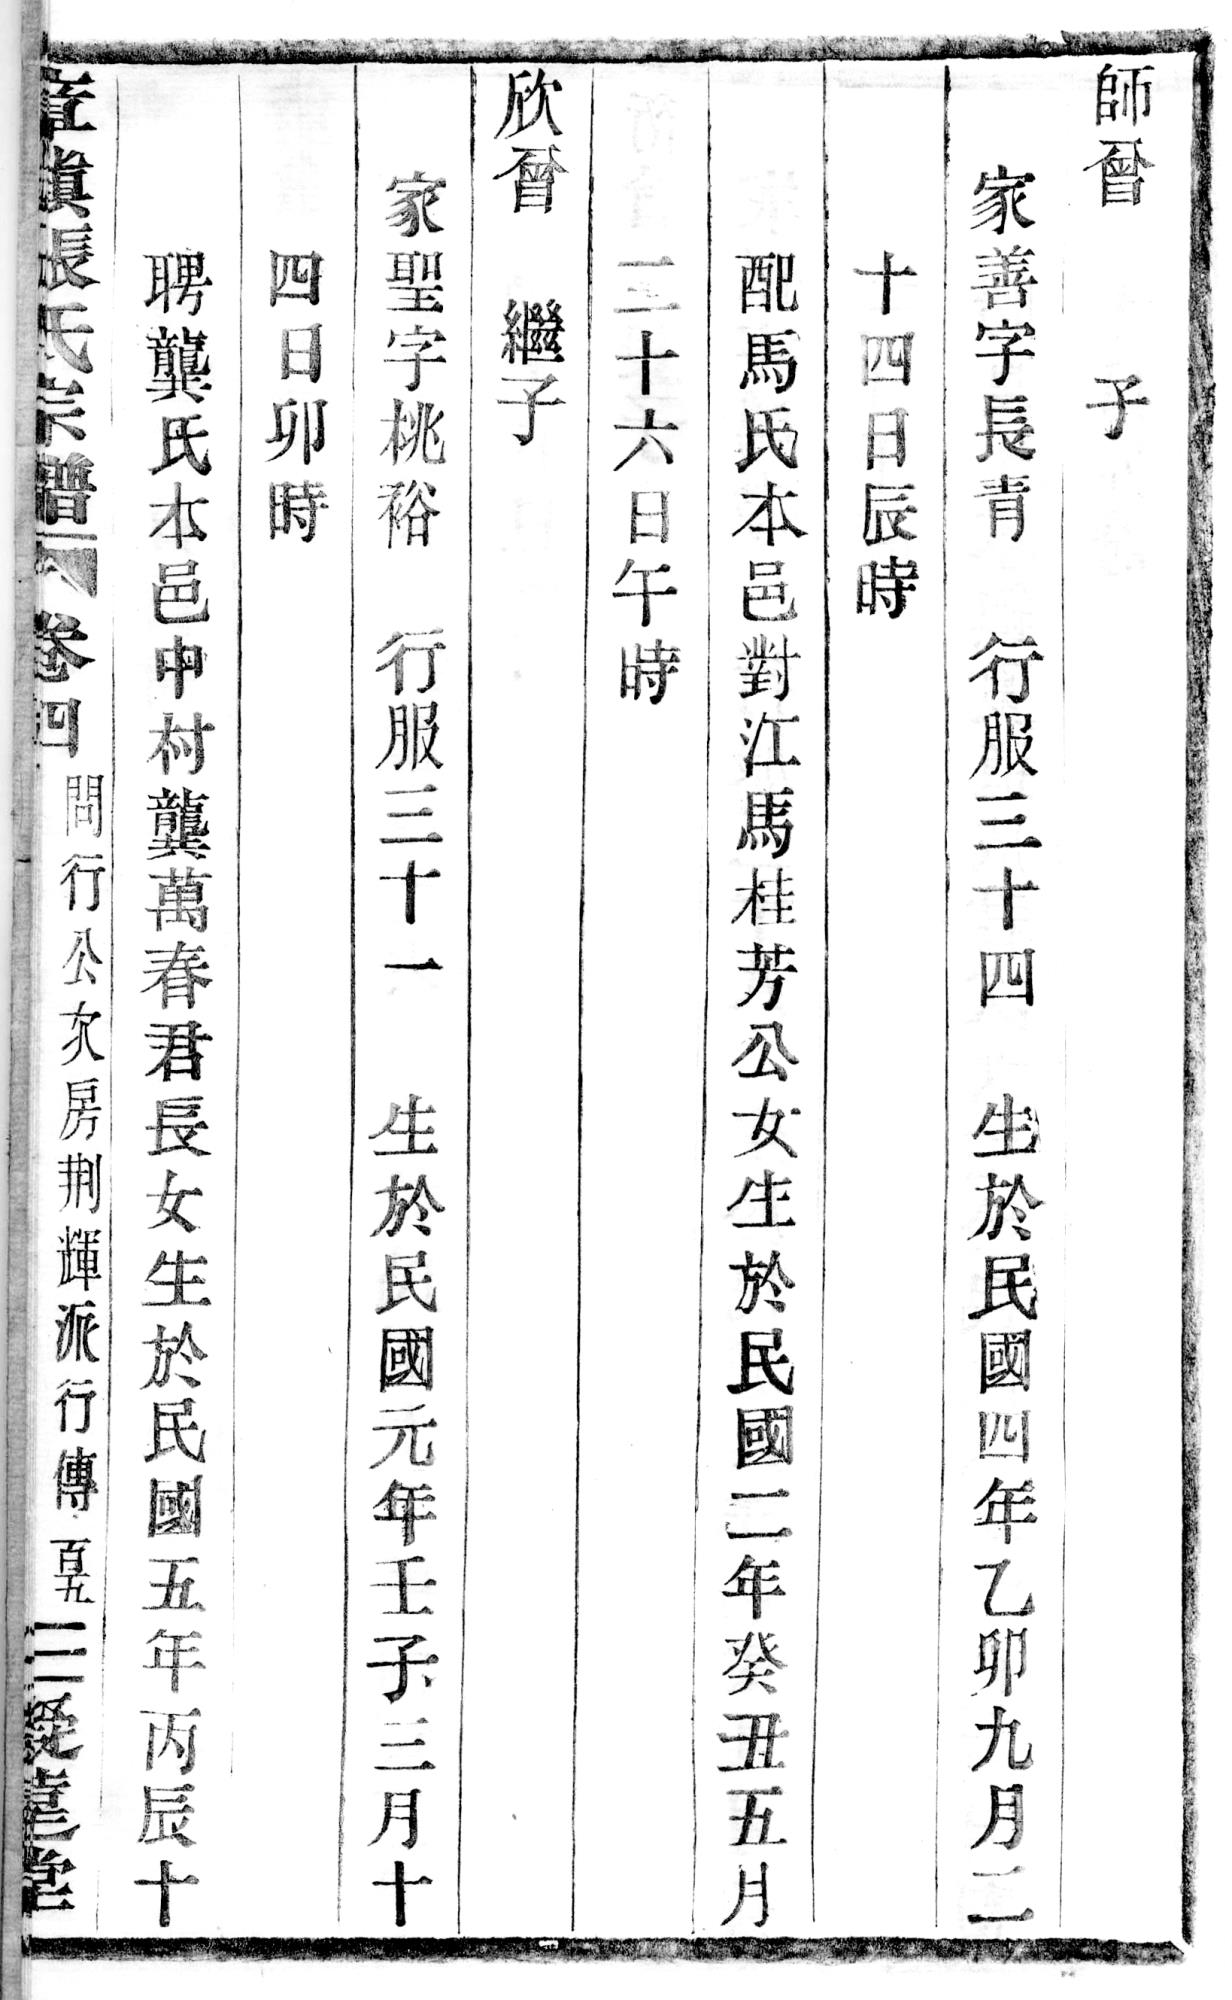 師曾　子
家善字長青　行服三十四　生於民國四年乙卯九月二
十四日辰時
配馬氏本邑對江馬桂芳公女生於民國二年癸丑五月
二十六日午時
欣曾　繼子
家聖字桃裕　行服三十一　生於民國元年壬子三月十
四日卯時
聘龔氏本邑中村龔萬春君長女生於民國五年丙辰十
章鎮張氏宗譜　卷四　問行公次房荆輝派行傳　百九　堂